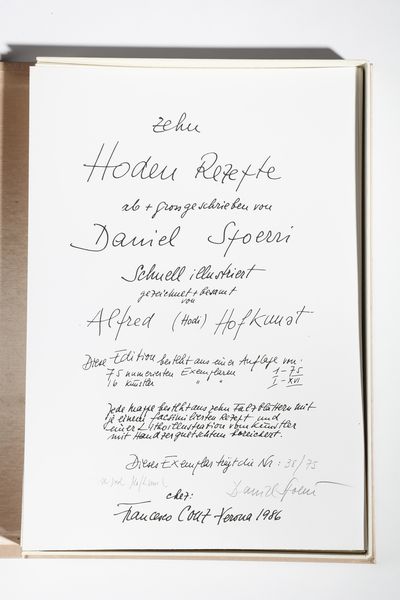 zehn
Hoden Rezepte
ab + grossgeschrieben von
Daniel Spoerri
Schnell illustriert
gezeichnet + besamt
von
Alfred (Hodi) Hofkunst
Diese Edition besteht aus einer Auflage von:
75 numerierten Exemplaren 1-75
16 Künstler " " I-XVI
Jede Mappe besteht aus zehn Falzblättern mit
je einem facsimilierten Rezept und
einer Lithoillustration vom Künstler
mit Handzerquetschtem bereichert.
Dieses Exemplar trägt die Nr: 35/75
Daniel Spoerri
chez:
Francesco Conz Verona 1986